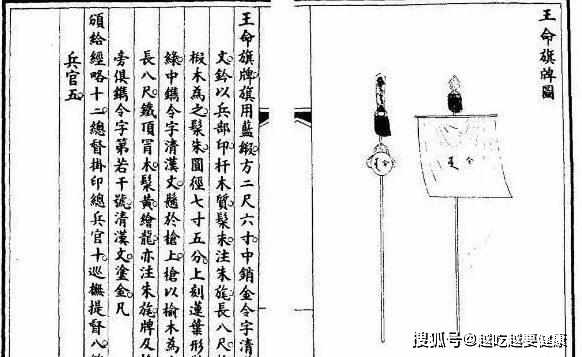 王命旗牌圖
令
令
王命旗牌旗用藍緞方二尺六寸中銷金令字清
文鈐以兵部印杆木質髹朱注朱旄長八尺
椴木為之髹朱圓徑七寸五分上刻蓮葉形
綠中鐫令字清漢文懸於槍上槍以榆木為
長八尺鐵頂冒木髹黃繪龍亦注朱旄牌及
旁俱鐫令字第若干號清漢文塗金凡
頒給經略十二總督掛印總兵官十巡撫提督八
兵官五
搜狐号@越吃越要健康